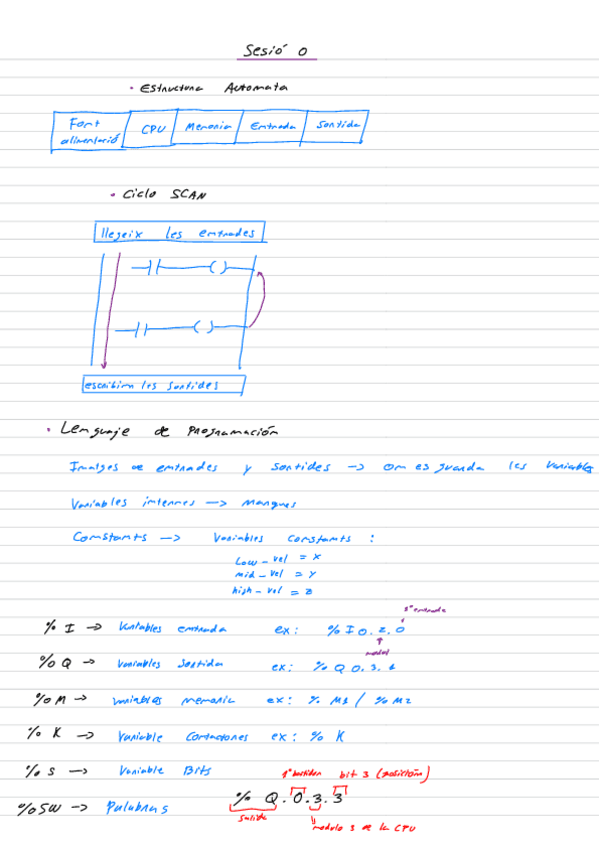 Sesió 0
• Estructura Automata
Font alimentació | CPU | Memoria | Entrada | Sortida
• Ciclo SCAN
llegeix les entrades
escribim les sortides
• Lenguaje de Programación
Imatges de entrades y sortides → on es guarda les variables
Variables internes → Marques
Constants → Variables constants :
Low-vel = X
mid-vel = Y
high-vel = Z
% I → Variables entrada ex: % I 0.2.0
entrada
modul
% Q → Variables Sortida ex: % Q 0.3.
% M → variables memoria ex: % M1 / % M2
% K → Variable ex: % K
% S → Variable Bits
bit 3 (posición)
% SW → Palabras % Q.0.3.3
Salida
modulo 3 de la CPU